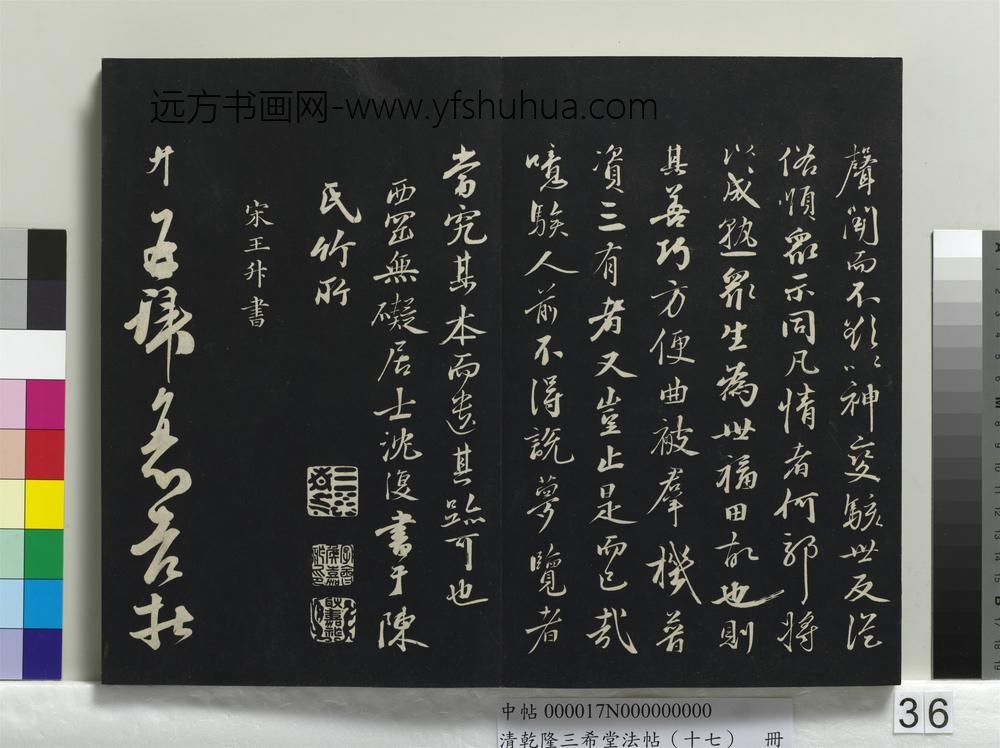 远方书画网-www.yfshuhua.com
聲聞而不歎以神變駭世反從
俗順衆示同凡情者何邪將
以成熟衆生為世福田故也則
其善巧方便曲被羣機普
資三有者又豈止是而已哉
噫騃人前不得說夢覽者
當究其本而遺其跡可也
西罡無礙居士沈復書于陳
氏竹所
宋王升書
升再拜
中帖 000017N000000000
清乾隆三希堂法帖（十七） 冊
36